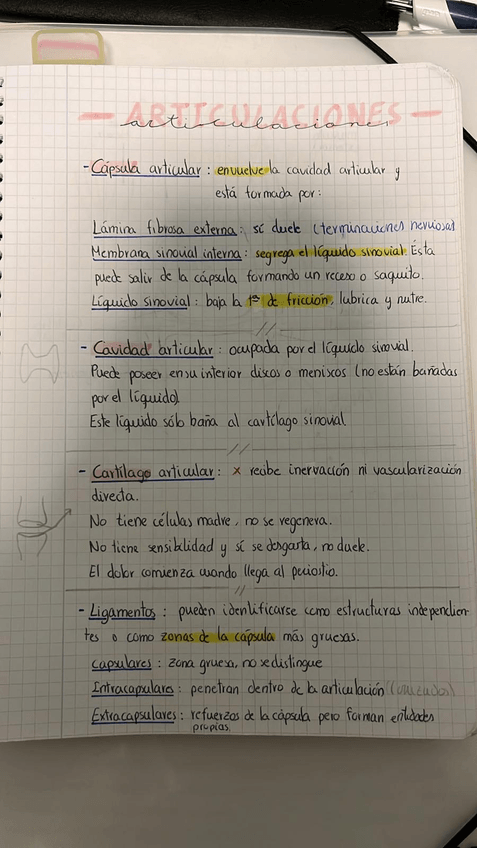 ARTICULACIONES
articulaciones
- Cápsula articular : envuelve la cavidad articular y
está formada por :
Lámina fibrosa externa : sí duele (terminaciones nerviosas)
Membrana sinovial interna : segrega el líquido sinovial. Ésta
puede salir de la cápsula formando un receso o saquito.
Líquido sinovial : baja la tª de fricción, lubrica y nutre.
//
- Cavidad articular : ocupada por el líquido sinovial.
Puede poseer en su interior discos o meniscos (no están bañadas
por el líquido).
Este líquido sólo baña al cartílago sinovial
//
- Cartílago articular : x recibe inervación ni vascularización
directa.
No tiene células madre, no se regenera.
No tiene sensibilidad y si se desgasta, no duele.
El dolor comienza cuando llega al periostio.
//
- Ligamentos : pueden identificarse como estructuras independien
tes o como zonas de la cápsula más gruesas.
Capsulares : zona gruesa, no se distingue
Intracapsulares : penetran dentro de la articulación (cruzados)
Extracapsulares : refuerzos de la cápsula pero forman entidades
propias.